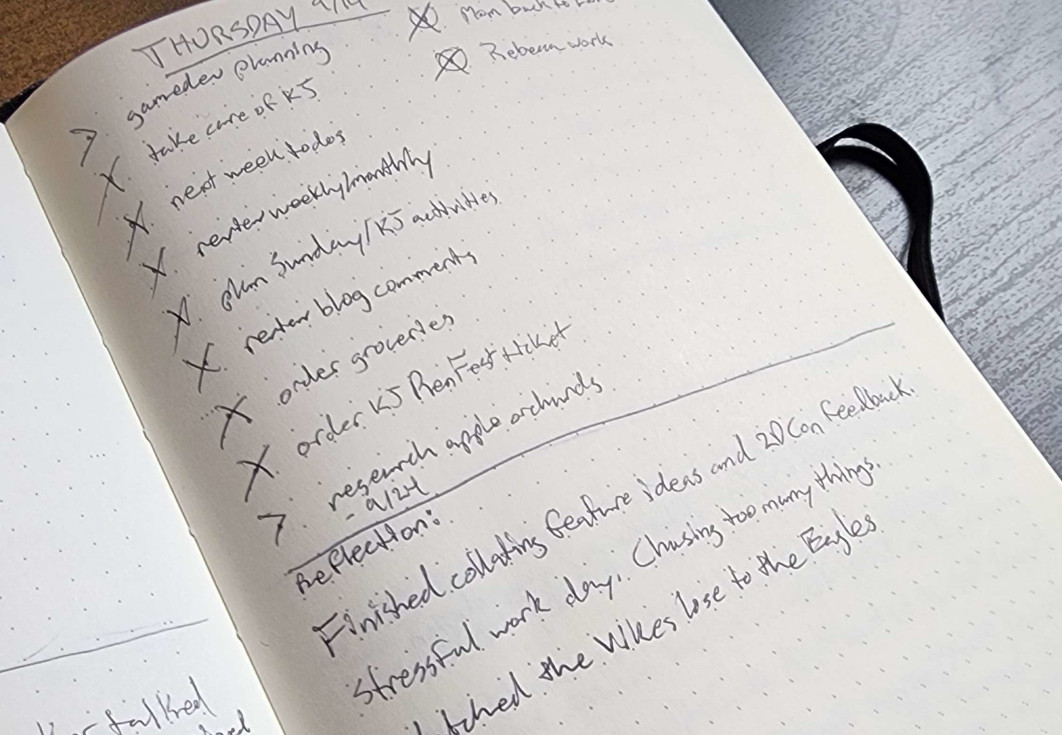 THURSDAY 9/14
X Mom back to
X Rebecca work
> gamedev planning
X take care of KJ
X next week todos
X review weekly/monthly
X plan Sunday/KJ activities
X review blog comments
X order groceries
X order KJ RenFest ticket
> research apple orchards
- 9/24
Reflection:
Finished collating feature ideas and 2DCon feedback.
Stressful work day. Chasing too many things.
the Vikes lose to the Eagles
talked